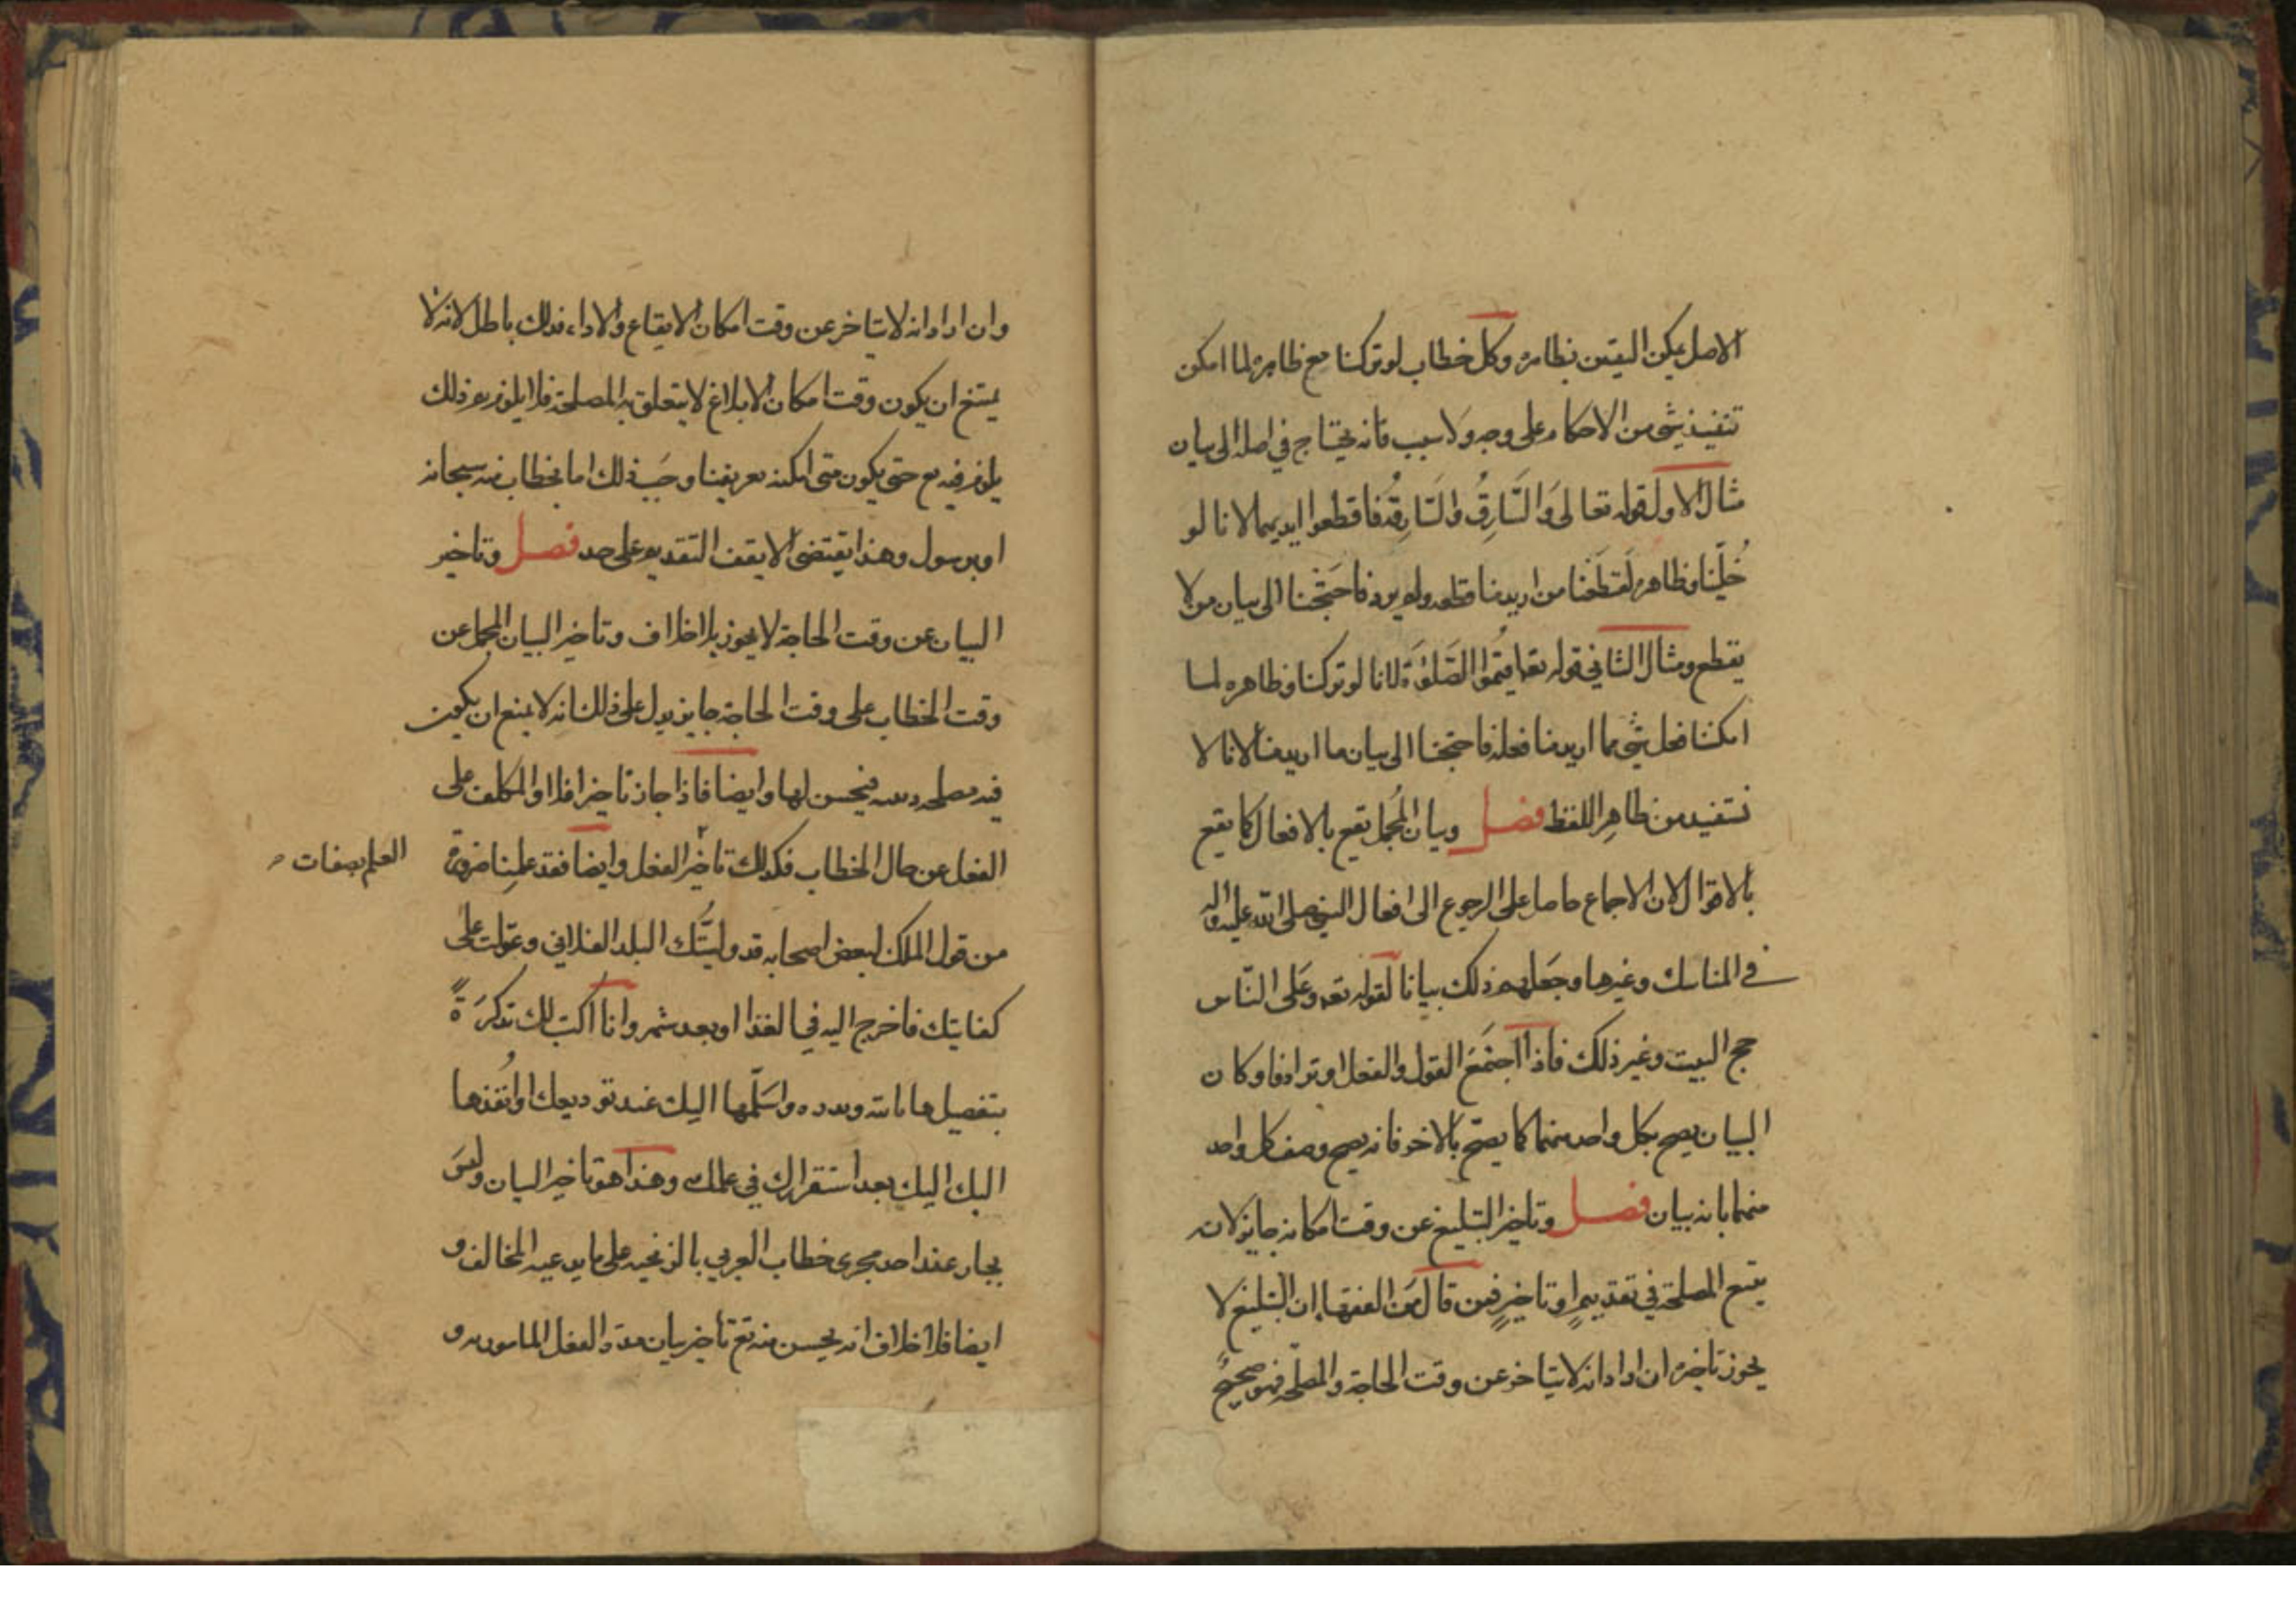 الاصل يمكن اليقين بظاهره وكل خطاب لو تركنا مع ظاهره لما امكن
تنفيذ شئ من الاحكام على وجه ولا سبب فانه يحتاج في اصله الى بيان
مثال الاول قوله تعالى وَالسَّارِقُ وَالسَّارِقَةُ فاقطعوا ايديهما لانا لو
خُلّينا وظاهره لقطعنا من اريد منا قطعه ولم يرد فاحتَجْنا الى بيان من لا
يقطع ومثال الثاني قوله تعه اقيمُوا الصَّلوٰةَ لانا لو تركنا وظاهره لما
امكننا فعل شئ مما اريد منا فعله فاحتجنا الى بيان ما اريد منا لانا لا
نستفيد من ظاهِر اللفظ فصل وبيان المُجمل يقع بالافعال كما يقع
بالاقوال لان الاجماع حاصل على الرجوع الى افعال النبي صلى الله عليه واله
في المناسك وغيرها وجَعلهم ذلك بيانا لقوله تعه وعَلى النّاس
حج البيت وغير ذلك فاذا اجتمَعَ القول والفعل او ترادفا وكان
البيان يصح بكل واحد منهما كما يصحّ بالاخر فانه يصح وصف كل واحد
منهما بانه بيان فصل وتاخير التبليغ عن وقت امكانه جايز لانه
يتبع المصلحة في تقديمٍ او تاخيرٍ فمن قال مَن الفقهاء ان التبليغ لا
يجوز تاخيره ان اراد انه لا يتاخر عن وقت الحاجة والمصلحة فهو صحيحٌ
وان اراد انه لا يتاخر عن وقت امكان الايقاع والاداء فذلك باطل لانه لا
يمتنع ان يكون وقت امكان الابلاغ لا يتعلق به المصلحة فلا يلزم ذلك
يلزم فيه حتى يكون متى امكنه تعريفنا وجَبَ ذلك اما بخطاب منه سبحانه
او برسول وهذا يقتضى الا يقف التقديم على حد فصل وتاخير
البيان عن وقت الحاجة لا يجوز بلا خلاف وتاخير البيان المجمل عن
وقت الخطاب على وقت الحاجة جايز يدل على ذلك انه لا يمنع ان يكون
فيه مصلحة فيحسن لها وايضا فاذا جاز تاخير اقدار المكلف على
الفعل عن حال الخطاب فكذلك تاخير العلم بصفات الفعل وايضا فقد علمنا ضرورة
من قول الملك لبعض اصحابه قد وليتُك البلد الفلاني وعوّلت على
كفايتك فاخرج اليه في الغد او بعد شهر وانا اكتب لك تذكرَةً
بتفصيل ما واسلّمها اليك عند توديعك او انفذها
اليك بعد استقرارك في عملك وهذا هو تاخير البيان وليسَ
بجار عند احد مجرى خطاب العربي بالزنجيه على ما يدعيه المخالف و
ايضا فلا خلاف انه يحسن منه تع تاخير بيان مدة الفعل المامور به و